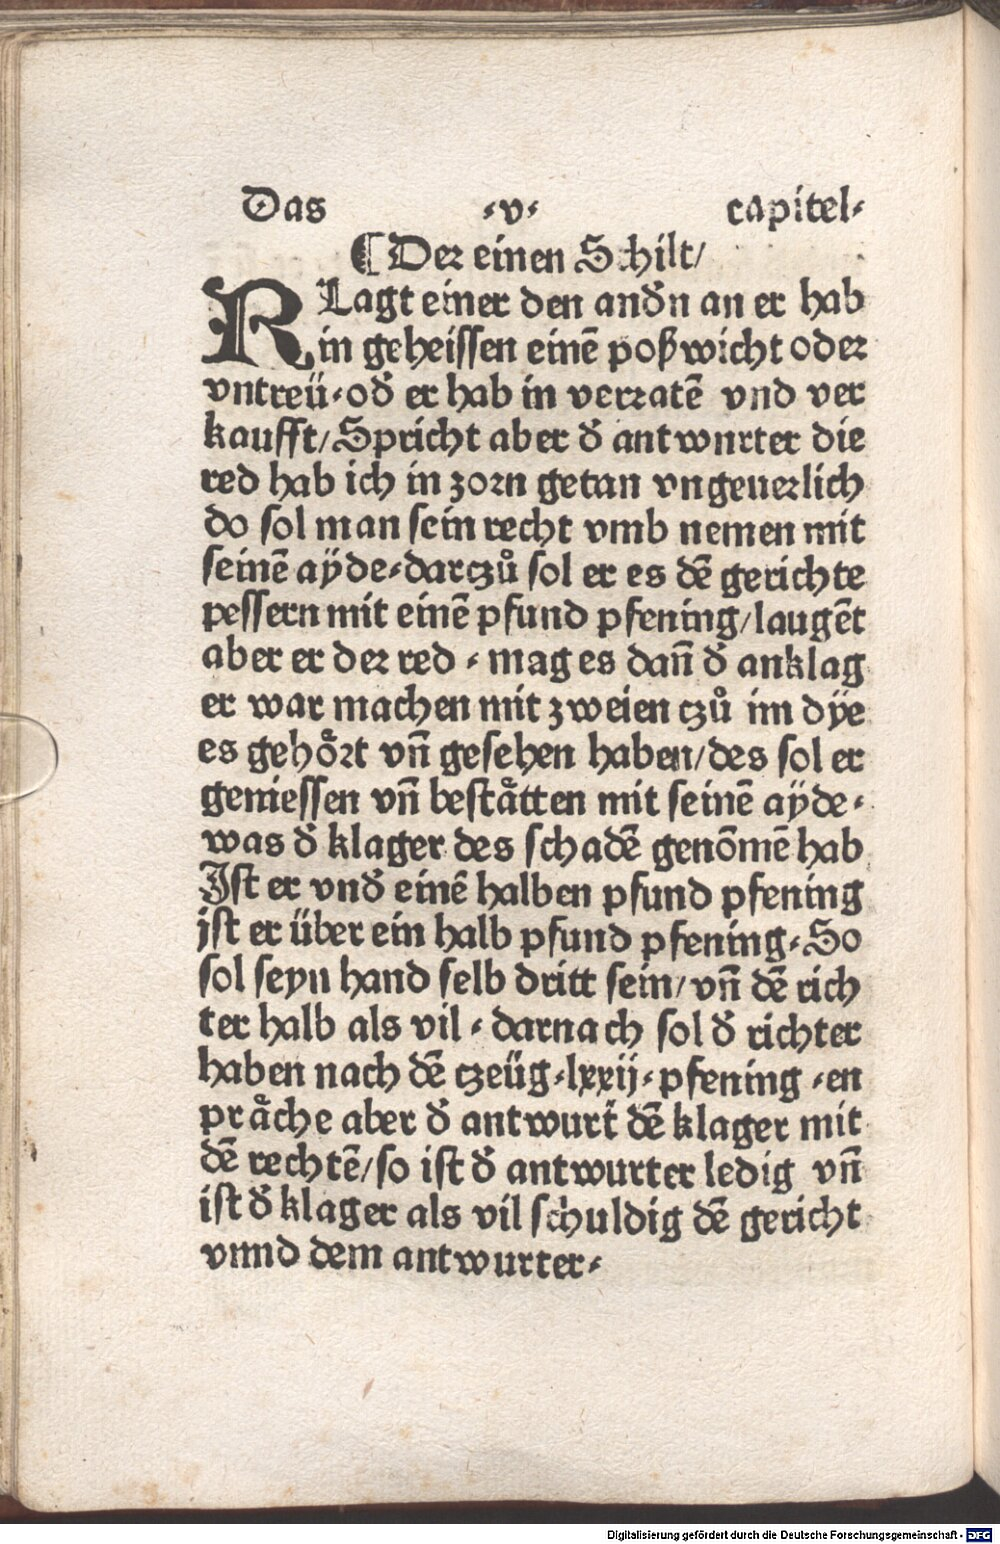 Das ·v· capitel·
¶ Der einen Schilt/
KLagt einer den and̄n an er hab
in geheissen einē poßwicht oder
vntreü·od̄ er hab in verratē vnd ver
kaufft/Spricht aber d̄ antwurter die
red hab ich in zorn getan vngeuerlich
do sol man sein recht vmb nemen mit
seinē aÿde·darczů sol er es dē gerichte
pessern mit einē pfund pfening/laugēt
aber er der red · mag es dañ d̄ anklag
er war machen mit zweien czů im dÿe
es gehoͤrt vñ gesehen haben/des sol er
geniessen vñ bestaͤtten mit seinē aÿde·
was d̄ klager des schadē genōmē hab
Ist er vnd̄ einē halben pfund pfening
ist er über ein halb pfund pfening·So
sol seyn hand selb dritt sein/vñ dē rich
ter halb als vil · darnach sol d̄ richter
haben nach dē czeüg·lxxij·pfening ·en
praͤche aber d̄ antwurt̄ dē klager mit
dē rechtē/so ist d̄ antwurter ledig vñ
ist d̄ klager als vil schuldig dē gericht
vnnd dem antwurter·
Digitalisierung gefördert durch die Deutsche Forschungsgemeinschaft - DFG